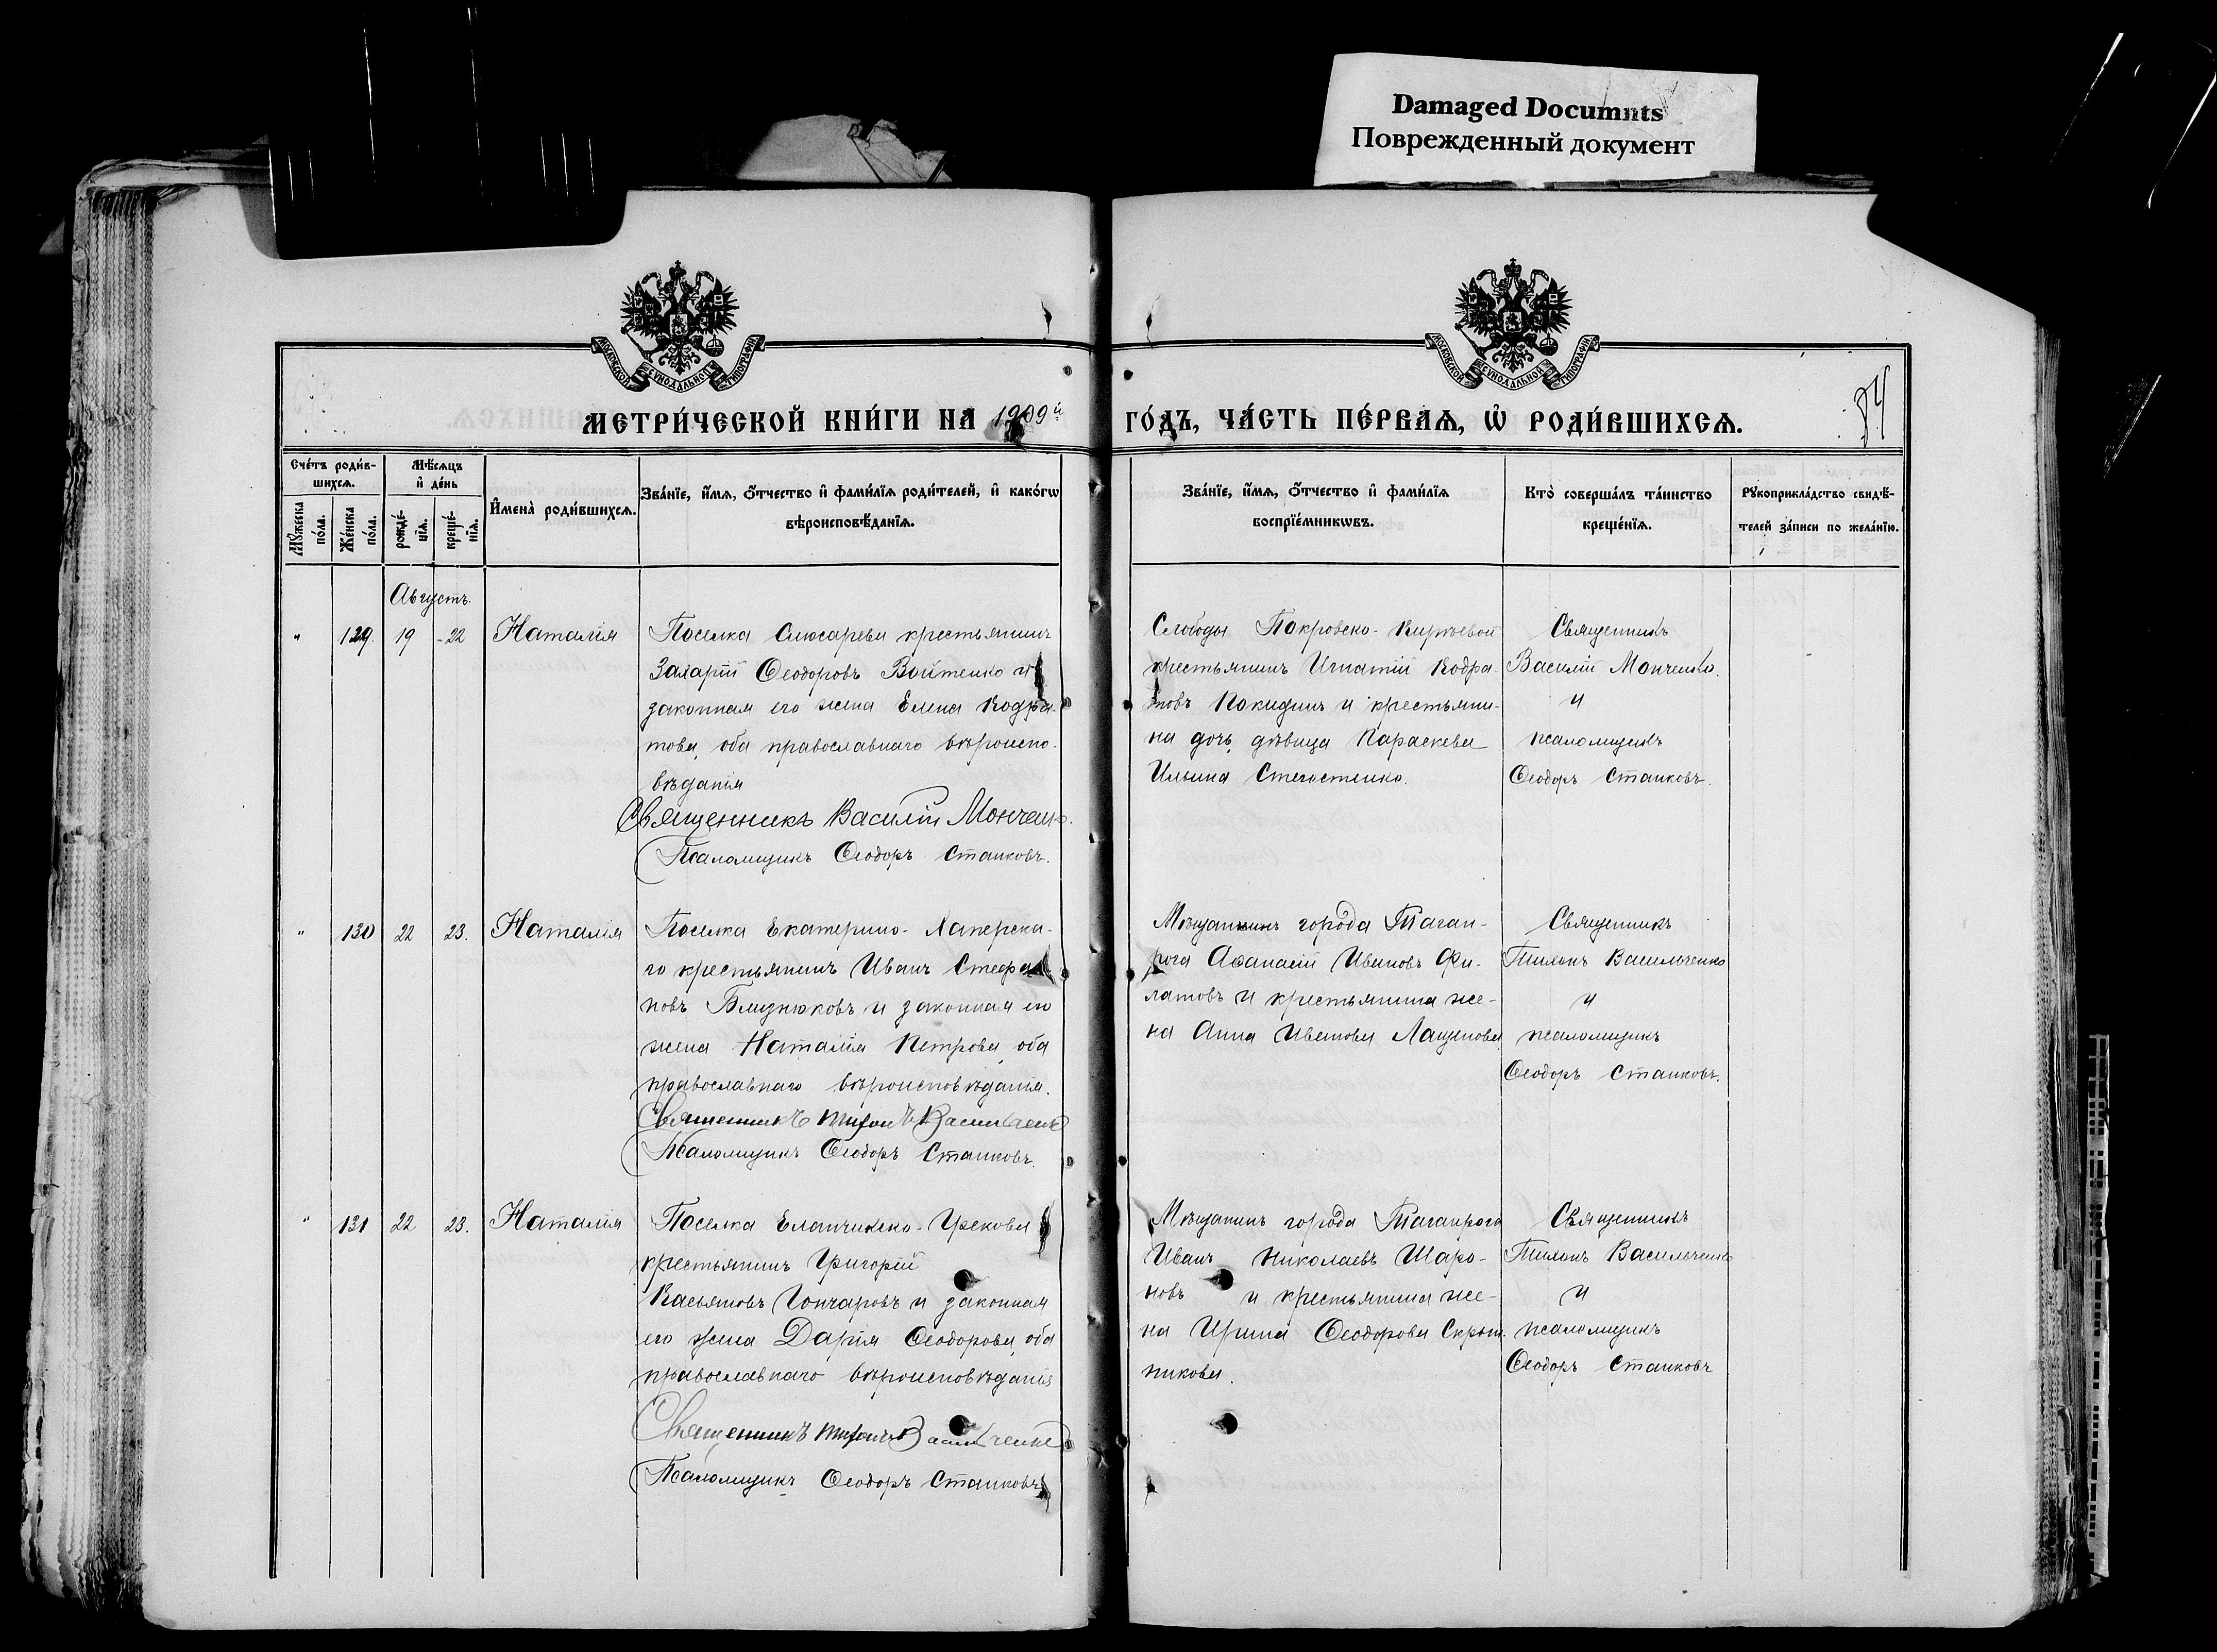 Damaged Documnts
Поврежденный документ
МОСКОВСКОЙ СѴНОДАЛЬНОЙ ТИПОГРАФІИ
МОСКОВСКОЙ СѴНОДАЛЬНОЙ ТИПОГРАФІИ
МЕТРИ́ЧЕСКОЙ КНИ́ГИ НА 1909й
ГО́ДЪ, ЧА́СТЬ ПЕ́РВАѦ, Ѡ҆ РОДИ́ВШИХСѦ.
84
Сче́тъ роди́в-
шихсѧ.
Мѣ́сѧцъ
и҆ де́нь
Мꙋ́жеска
по́ла.
Же́нска
по́ла.
рожде́-
нїѧ.
креще́-
нїѧ.
И҆мена̀ роди́вшихсѧ.
Зва́нїе, и҆́мѧ, ѻ҆́тчество и҆ фами́лїѧ роди́телей, и҆ како́гѡ
вѣроисповѣ́данїѧ.
Зва́нїе, и҆́мѧ, ѻ҆́тчество и҆ фами́лїѧ
воспрїе́мникѡвъ.
Кто̀ соверша́лъ та́инство
креще́нїѧ.
Рꙋкоприкла́дство свидѣ́-
телей за́писи по жела́нїю.
Августъ.
" 129. 19 - 22 Наталія
Поселка Слюсарева крестьянинъ
Захарій Ѳеодоровъ Войтенко и
законная его жена Елена Кодра-
това, оба православнаго вѣроиспо-
вѣданія
Священникъ Василій Мончен
Псаломщикъ Ѳеодоръ Станковъ.
Слободы Покровско-Киреевой
крестьянинъ Игнатій Кодра-
товъ Покидинъ и крестьяни-
на дочь, дѣвица Параскева
Ильина
Священникъ
Василій Монченко.
и
псаломщикъ
Ѳеодоръ Станковъ.
" 130 22 23. Наталія
Поселка Екатерино-Хаперска-
го крестьянинъ Иванъ Стефа-
новъ Блиднюковъ и законная его
жена Наталія Петрова, оба
православнаго вѣроисповѣданія.
Священникъ Тихонъ Васильченко
Псаломщикъ Ѳеодоръ Станковъ.
Мѣщанинъ города Таган-
рога Аѳанасій Ивановъ Фи-
латовъ и крестьянина же-
на Анна Иванова Лащенова
Священникъ
Тихонъ Васильченко
и
псаломщикъ
Ѳеодоръ Станковъ.
" 131 22 23. Наталія
Поселка Еланчикско-Грекова
крестьянинъ Григорій
Касьяновъ Гончаровъ и законная
его жена Дарія Ѳеодорова, оба
православнаго вѣроисповѣданія
Священникъ Тихонъ Васильченко
Псаломщикъ Ѳеодоръ Станковъ
Мѣщанинъ города Таганрога
Иванъ Николаевъ Шаро-
новъ и крестьянина же-
на Ирина Ѳеодорова Скрып-
никова.
Священникъ
Тихонъ Васильченко
и
псаломщикъ
Ѳеодоръ Станковъ